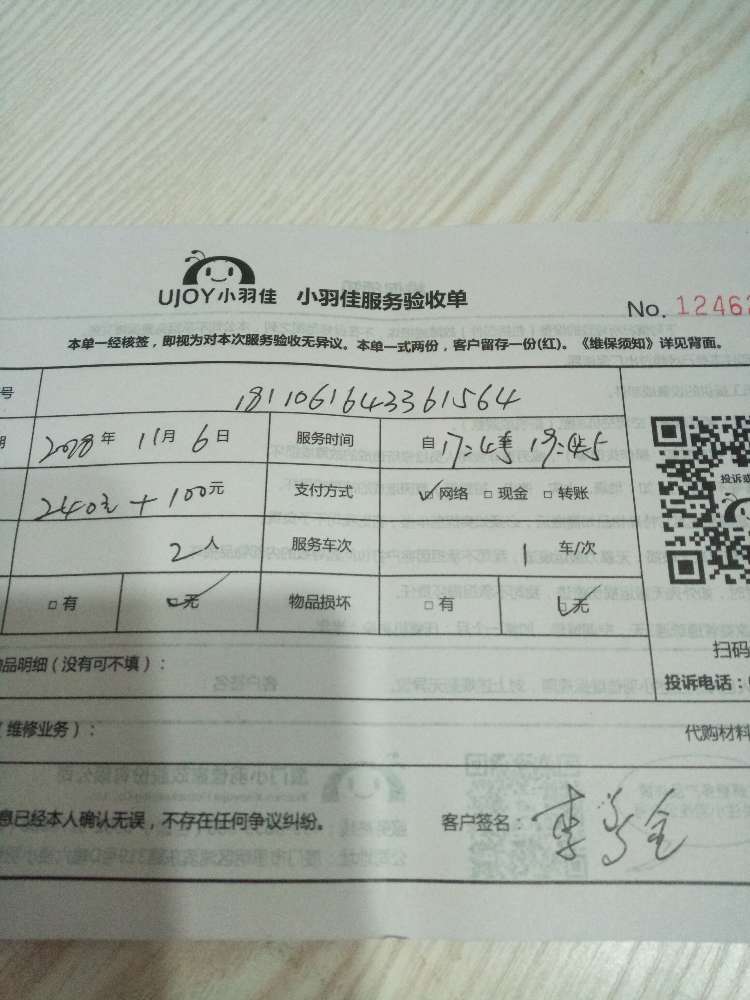 UJOY小羽佳 小羽佳服务验收单
No. 12462
本单一经核签，即视为对本次服务验收无异议。本单一式两份，客户留存一份(红)。《维保须知》详见背面。
号 1811061643361564
期 2018年 11月 6日 服务时间 自17:45至19:45
240元+100元 支付方式 网络 现金 转账
2人 服务车次 1 车/次
有 无 物品损坏 有 无
投诉或
扫码
投诉电话：
品明细（没有可不填）：
（维修业务）： 代购材料
息已经本人确认无误，不存在任何争议纠纷。 客户签名：